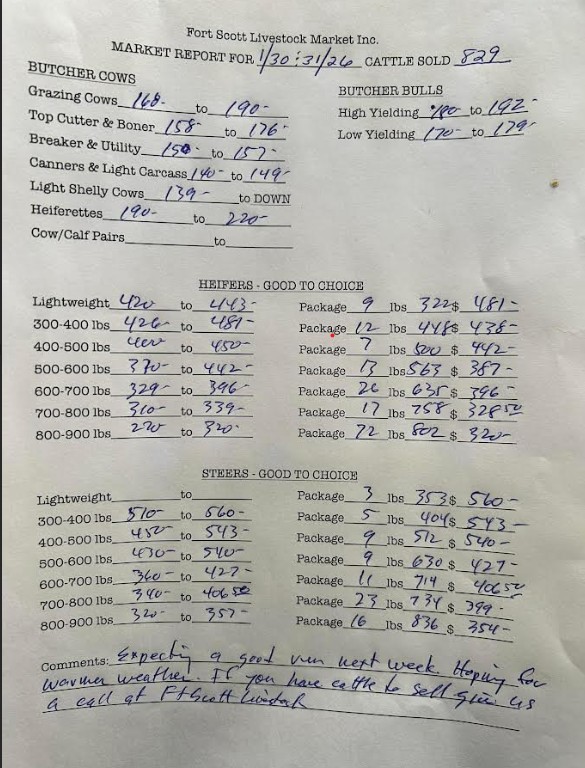 Fort Scott Livestock Market Inc.
MARKET REPORT FOR 1/30:31/26 CATTLE SOLD 829
BUTCHER COWS
Grazing Cows 168- to 190-
Top Cutter & Boner 158- to 176-
Breaker & Utility 150- to 157-
Canners & Light Carcass 140- to 149-
Light Shelly Cows 139- to DOWN
Heiferettes 190- to 220-
Cow/Calf Pairs to
BUTCHER BULLS
High Yielding 180- to 192-
Low Yielding 170- to 179-
HEIFERS - GOOD TO CHOICE
Lightweight 420 to 443- Package 9 lbs 322 $ 481-
300-400 lbs 426- to 481- Package 12 lbs 448 $ 438-
400-500 lbs 400 to 450- Package 7 lbs 500 $ 442-
500-600 lbs 370- to 442- Package 13 lbs 563 $ 387-
600-700 lbs 329- to 396- Package 26 lbs 635 $ 396-
700-800 lbs 310- to 339- Package 17 lbs 758 $ 328 50
800-900 lbs 270 to 320- Package 72 lbs 802 $ 320-
STEERS - GOOD TO CHOICE
Lightweight to Package 3 lbs 353 $ 560-
300-400 lbs 510- to 560- Package 5 lbs 404 $ 543-
400-500 lbs 450- to 543- Package 9 lbs 512 $ 540-
500-600 lbs 430- to 540- Package 9 lbs 630 $ 427-
600-700 lbs 360- to 427- Package 11 lbs 714 $ 406 50
700-800 lbs 340- to 406 50 Package 23 lbs 734 $ 399-
800-900 lbs 320- to 357- Package 16 lbs 836 $ 354-
Comments: Expecting a good run next week. Hoping for
warmer weather. If you have cattle to sell give us
a call at Ft Scott Livestock